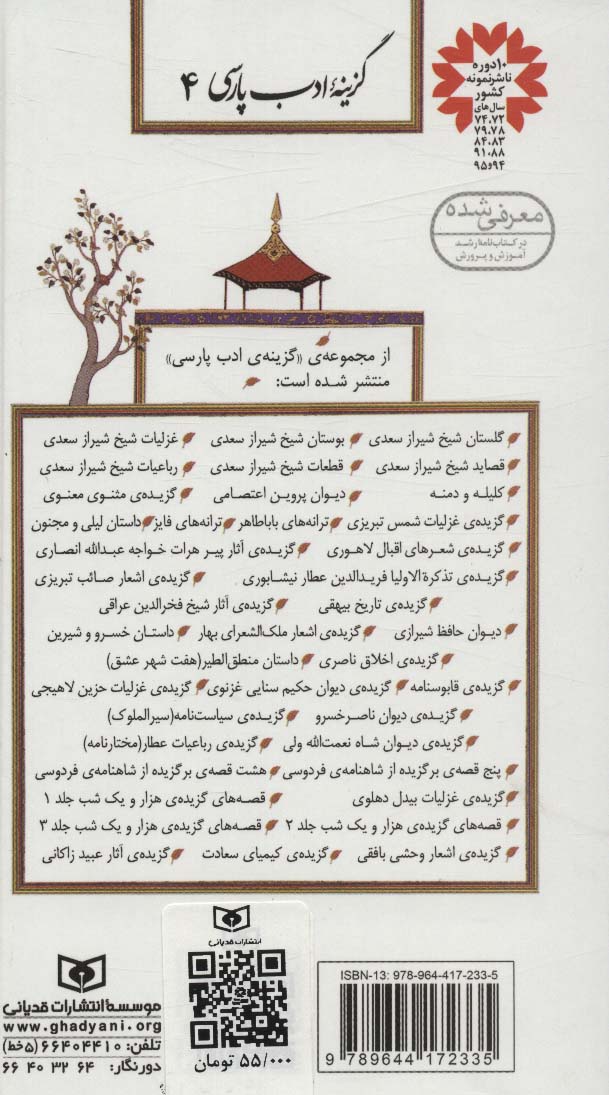 گزینهٔ ادب پارسی ۴
۱۰دوره
ناشر نمونه
کشور
سال‌های
۷۴،۷۲
۷۹،۷۸
۸۴،۸۳
۹۱،۸۸
۹۴و۹۵
معرفی شده
در کتاب‌نامه رشد
آموزش و پرورش
از مجموعه‌ی «گزینه‌ی ادب پارسی»
منتشر شده است:
گلستان شیخ شیراز سعدی بوستان شیخ شیراز سعدی غزلیات شیخ شیراز سعدی
قصاید شیخ شیراز سعدی قطعات شیخ شیراز سعدی رباعیات شیخ شیراز سعدی
کلیله و دمنه دیوان پروین اعتصامی گزیده‌ی مثنوی معنوی
گزیده‌ی غزلیات شمس تبریزی ترانه‌های باباطاهر ترانه‌های فایز داستان لیلی و مجنون
گزیده‌ی شعرهای اقبال لاهوری گزیده‌ی آثار پیر هرات خواجه عبدالله انصاری
گزیده‌ی تذکرةالاولیا فریدالدین عطار نیشابوری گزیده‌ی اشعار صائب تبریزی
گزیده‌ی تاریخ بیهقی گزیده‌ی آثار شیخ فخرالدین عراقی
دیوان حافظ شیرازی گزیده‌ی اشعار ملک‌الشعرای بهار داستان خسرو و شیرین
گزیده‌ی اخلاق ناصری داستان منطق‌الطیر(هفت شهر عشق)
گزیده‌ی قابوسنامه گزیده‌ی دیوان حکیم سنایی غزنوی گزیده‌ی غزلیات حزین لاهیجی
گزیده‌ی دیوان ناصرخسرو گزیده‌ی سیاست‌نامه(سیرالملوک)
گزیده‌ی دیوان شاه نعمت‌الله ولی گزیده‌ی رباعیات عطار(مختارنامه)
پنج قصه‌ی برگزیده از شاهنامه‌ی فردوسی هشت قصه‌ی برگزیده از شاهنامه‌ی فردوسی
گزیده‌ی غزلیات بیدل دهلوی قصه‌های گزیده‌ی هزار و یک شب جلد ۱
قصه‌های گزیده‌ی هزار و یک شب جلد ۲ قصه‌های گزیده‌ی هزار و یک شب جلد ۳
گزیده‌ی اشعار وحشی بافقی گزیده‌ی کیمیای سعادت گزیده‌ی آثار عبید زاکانی
ISBN-13: 978-964-417-233-5
9 789644 172335
انتشارات قدیانی
۵۵/۰۰۰ تومان
موسسهٔ انتشارات قدیانی
www.ghadyani.org
تلفن: ۶۶۴۰۴۴۱۰ (۵خط)
دورنگار: ۶۶ ۴۰ ۳۲ ۶۴